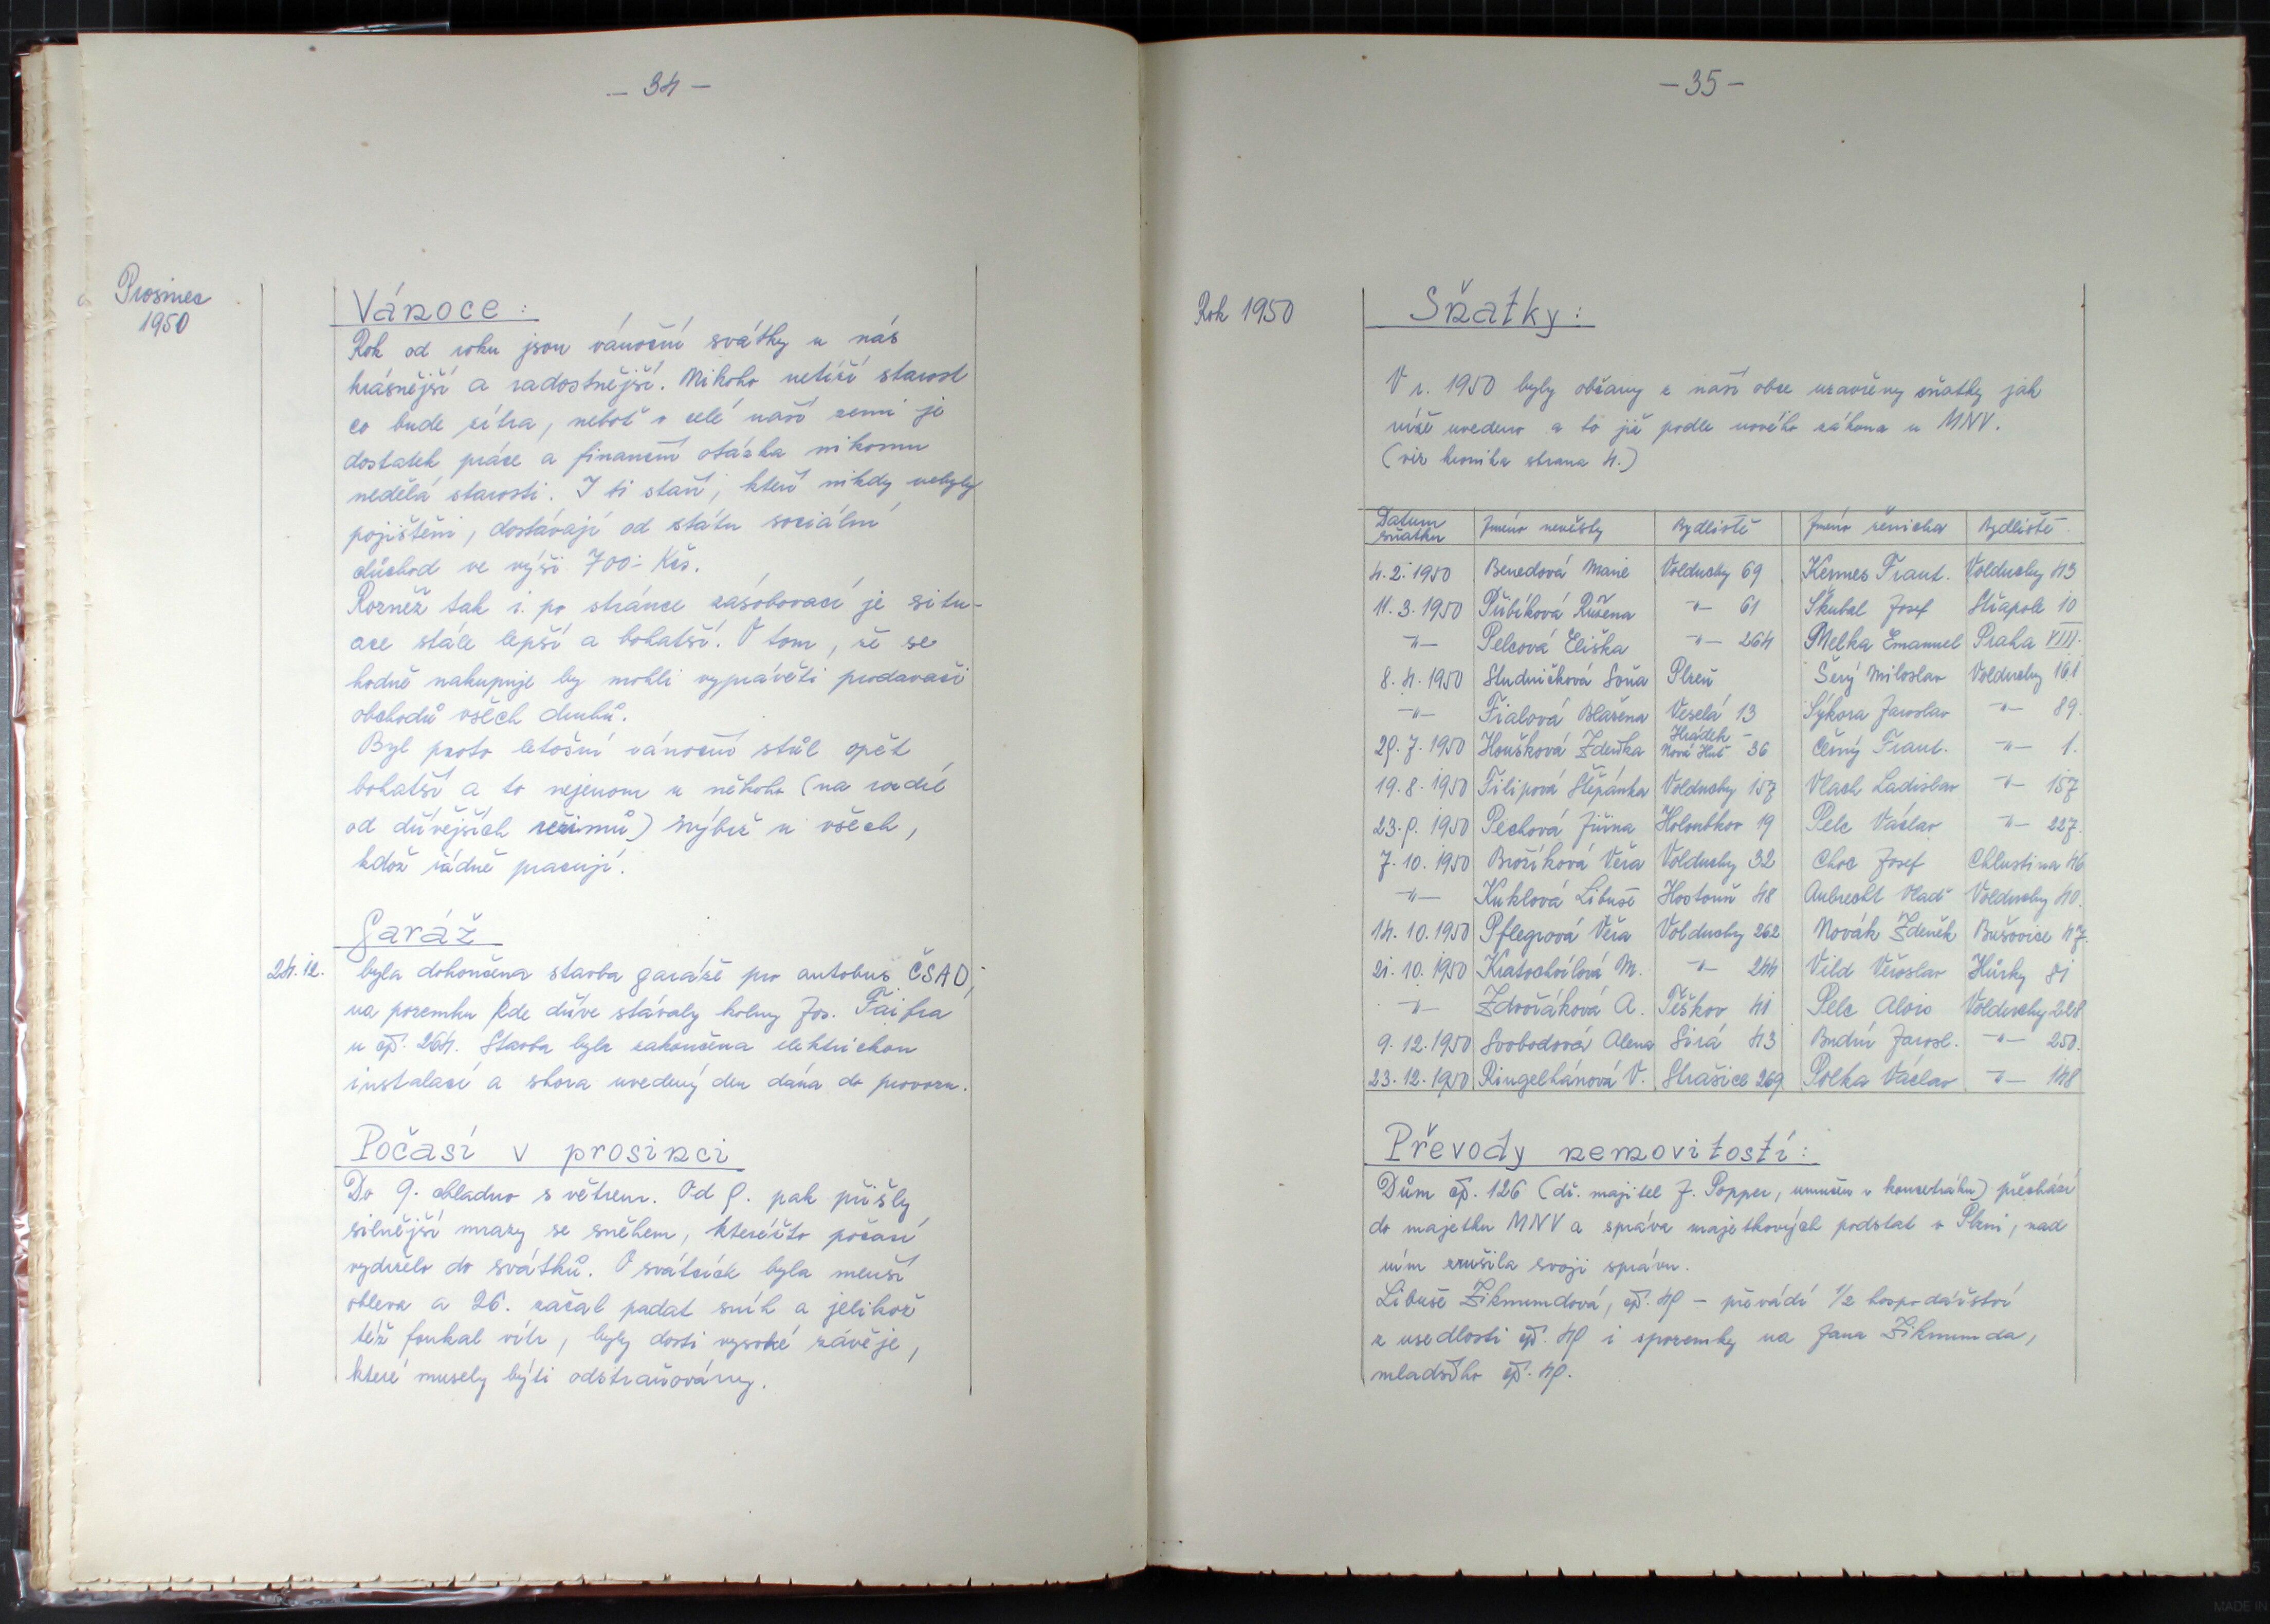 - 34 -
Prosinec
1950
Vánoce:
Rok od roku jsou vánoční svátky u nás
krásnější a radostnější. Nikoho netíží starost
co bude zítra, neboť v celé naší zemi je
dostatek práce a finanční otázka nikomu
nedělá starosti. I ti staří, kteří nikdy nebyly
pojištěni, dostávají od státu sociální
důchod ve výši 700.- Kčs.
Rovněž tak i po stránce zásobovací je situ-
ace stále lepší a bohatší. O tom, že se
hodně nakupuje by mohli vyprávěti prodavači
obchodů všech druhů.
Byl proto letošní vánoční stůl opět
bohatší a to nejenom u někoho (na rozdíl
od dřívějších režimů) nýbrž u všech,
kdož řádně pracují.
Garáž
24.12. byla dokončena stavba garáže pro autobus ČSAD,
na pozemku kde dříve stávaly kolny Jos. Faifra
u čp. 264. Stavba byla zakončena elektrickou
instalací a shora uvedený den dána do provozu.
Počasí v prosinci
Do 9. chladno s větrem. Od 9. pak přišly
silnější mrazy se sněhem, kteréžto počasí
vydrželo do svátků. O svátcích byla menší
obleva a 26. začal padat sníh a jelikož
též foukal vítr, byly dosti vysoké závěje,
které musely býti odstraňovány.
- 35 -
Rok 1950
Sňatky:
V r. 1950 byly občany z naší obce uzavřeny sňatky jak
níže uvedeno a to již podle nového zákona u MNV.
(viz kronika strana 4.)
Datum sňatku Jméno nevěsty Bydliště Jméno ženicha Bydliště
4.2.1950 Benedová Marie Volduchy 69 Kermes Frant. Volduchy 43
11.3.1950 Přibíková Růžena -"- 61 Škubal Josef Střapole 10
-"- Pelcová Eliška -"- 264 Melka Emanuel Praha VIII.
8.4.1950 Studničková Soňa Plzeň Šerý Miloslav Volduchy 161
-"- Fialová Blažena Veselá 13 Sýkora Jaroslav -"- 89.
29.7.1950 Houšková Zdeňka Hrádek - Nová Huť 36 Černý Frant. -"- 1.
19.8.1950 Filipová Štěpánka Volduchy 157 Vlach Ladislav -"- 157
23.9.1950 Pechová Jiřina Holoubkov 19 Pelc Václav -"- 227.
7.10.1950 Brožíková Věra Volduchy 32 Choc Josef Chlustina 46
-"- Kuklová Libuše Hostouň 48 Aubrecht Vlad. Volduchy 40.
14.10.1950 Pflegrová Věra Volduchy 262 Novák Zdeněk Bušovice 47.
21.10.1950 Kratochvílová M. -"- 244 Vild Věroslav Hůrky 81
-"- Zdvořáková A. Těškov 41 Pelc Alois Volduchy 228
9.12.1950 Svobodová Alena Sirá 43 Budín Jarosl. -"- 250.
23.12.1950 Ringelhánová V. Strašice 269 Polka Václav -"- 148
Převody nemovitostí:
Dům čp. 126 (dř. majitel J. Popper, umučen v koncetráku) přechází
do majetku MNV a správa majetkových podstat v Plzni, nad
ním zrušila svoji správu.
Libuše Zikmundová, čp. 49 - převádí 1/2 hospodářství
z usedlosti čp. 49 i spozemky na Jana Zikmunda,
mladšího čp. 49.